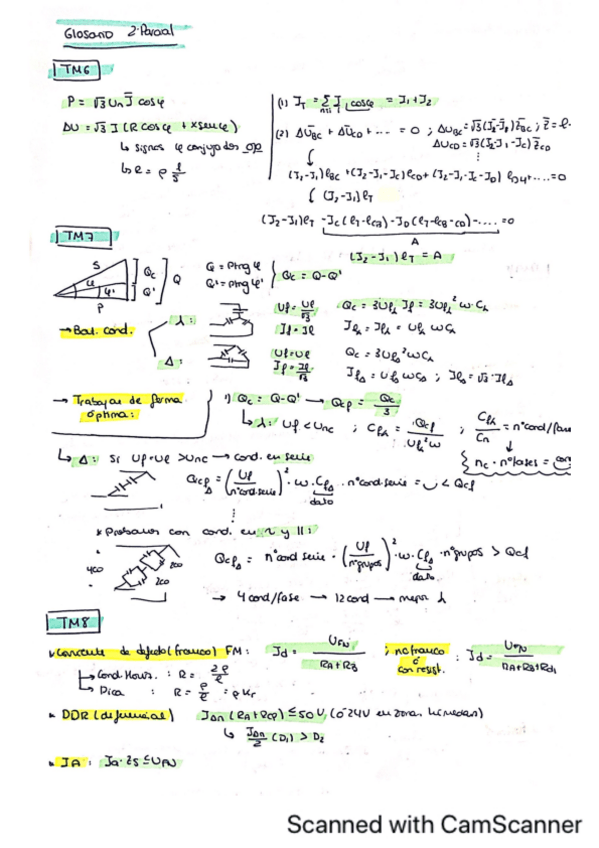 Glosario 2º Parcial
TM6
P = √3 Un I cosφ
ΔU = √3 I (R cosφ + X senφ)
↳ signos φ conjugados
↳ R = ρ l/S
(1) I_T = Σ I_i cosφ = I_1 + I_2
(2) ΔU_BC + ΔU_CD + ... = 0 ; ΔU_BC = √3 (I_2 - I_1) Z_BC ;
ΔU_CD = √3 (I_2 - I_1 - I_C) Z_CD
(I_2 - I_1) l_BC + (I_2 - I_1 - I_C) l_CD + (I_2 - I_1 - I_C - I_D) ... = 0
(I_2 - I_1) l_T
(I_2 - I_1) l_T - I_C (l_T - l_CB) - I_D (l_T - l_CB - l_CD) - .... = 0
A
(I_2 - I_1) l_T = A
TM7
S φ φ' P Qc Q' Q
Q = P tng φ
Q' = P tng φ'
Qc = Q - Q'
→ Bat. cond.
λ: Uf = Ul/√3 Qc = 3 Uf If = 3 Uf² w C
If = Il
Δ: Uf = Ul Qc = 3 Uf² w C
If = Il/√3 ; Il = √3 · If
→ Trabajar de forma óptima:
1) Qc = Q - Q' → Qcf = Qc/3
↳ λ: Uf < Unc ; Cf = Qcf/(Uf² w) ; Cf/Cn = nºcond/fase
nc · nºfases =
↳ Δ: Si Uf = Ul > Unc → cond. en serie
Qcf Δ = (Uf/nºcond serie)² · w · Cf · nºcond serie = < Qcf
dato
* Probamos con cond. en y ||:
400 200 200
Qcf Δ = nºcond serie · (Uf/nºgrupos)² · w · Cf · nºgrupos > Qcf
dato
→ 4 cond/fase → 12 cond → mejor λ
TM8
Corriente de defecto (franco) FM: Id = U_FN/(RA+RB) ; no franco ó con resist. : Id = U_FN/(RA+RB+Rd)
↳ Cond. Horiz. : R = 2ρ/l
↳ Pica : R = ρ/l = ρ Kr
DDR (diferencial) IΔn (RA + Rcp) ≤ 50V, (ó 24V en zonas húmedas)
↳ IΔn/2 (D1) > D2
IA : Ia · Zs ≤ U_FN
Scanned with CamScanner